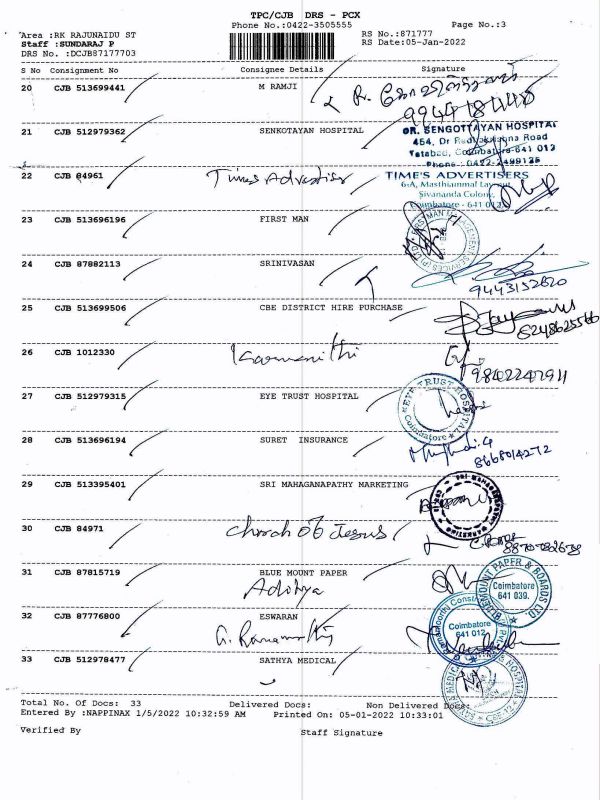 TPC/CJB DRS - PCX
Phone No.:0422-3505555
Page No.:3
Area :RK RAJUNAIDU ST
Staff :SUNDARAJ P
DRS No. :DCJB87177703
RS No.:871777
RS Date:05-Jan-2022
S No Consignment No Consignee Details Signature
20 CJB 513699441 M RAMJI
21 CJB 512979362 SENKOTAYAN HOSPITAL
DR. SENGOTTAYAN HOSPITAL
454, Dr Road
Tatabad, Coimbatore-641 012
Phone: 0422-2499135
22 CJB 84961 Times Advertiser
TIME'S ADVERTISERS
6-A, Masthiammal
Sivananda Colony,
Coimbatore - 641 012.
23 CJB 513696196 FIRST MAN
24 CJB 87882113 SRINIVASAN
9443152820
25 CJB 513699506 CBE DISTRICT HIRE PURCHASE
8248625566
26 CJB 1012330
27 CJB 512979315 EYE TRUST HOSPITAL
EYE TRUST HOSPITAL
Coimbatore
28 CJB 513696194 SURET INSURANCE
8668014272
29 CJB 513395401 SRI MAHAGANAPATHY MARKETING
30 CJB 84971 Church Of Jesus
31 CJB 87815719 BLUE MOUNT PAPER
Adithya
BLUEMOUNT PAPER & BOARDS
Coimbatore
641 039.
32 CJB 87776800 ESWARAN
Coimbatore
641 012
33 CJB 512978477 SATHYA MEDICAL
Total No. Of Docs: 33 Delivered Docs: Non Delivered Docs:
Entered By :NAPPINAX 1/5/2022 10:32:59 AM Printed On: 05-01-2022 10:33:01
Verified By Staff Signature